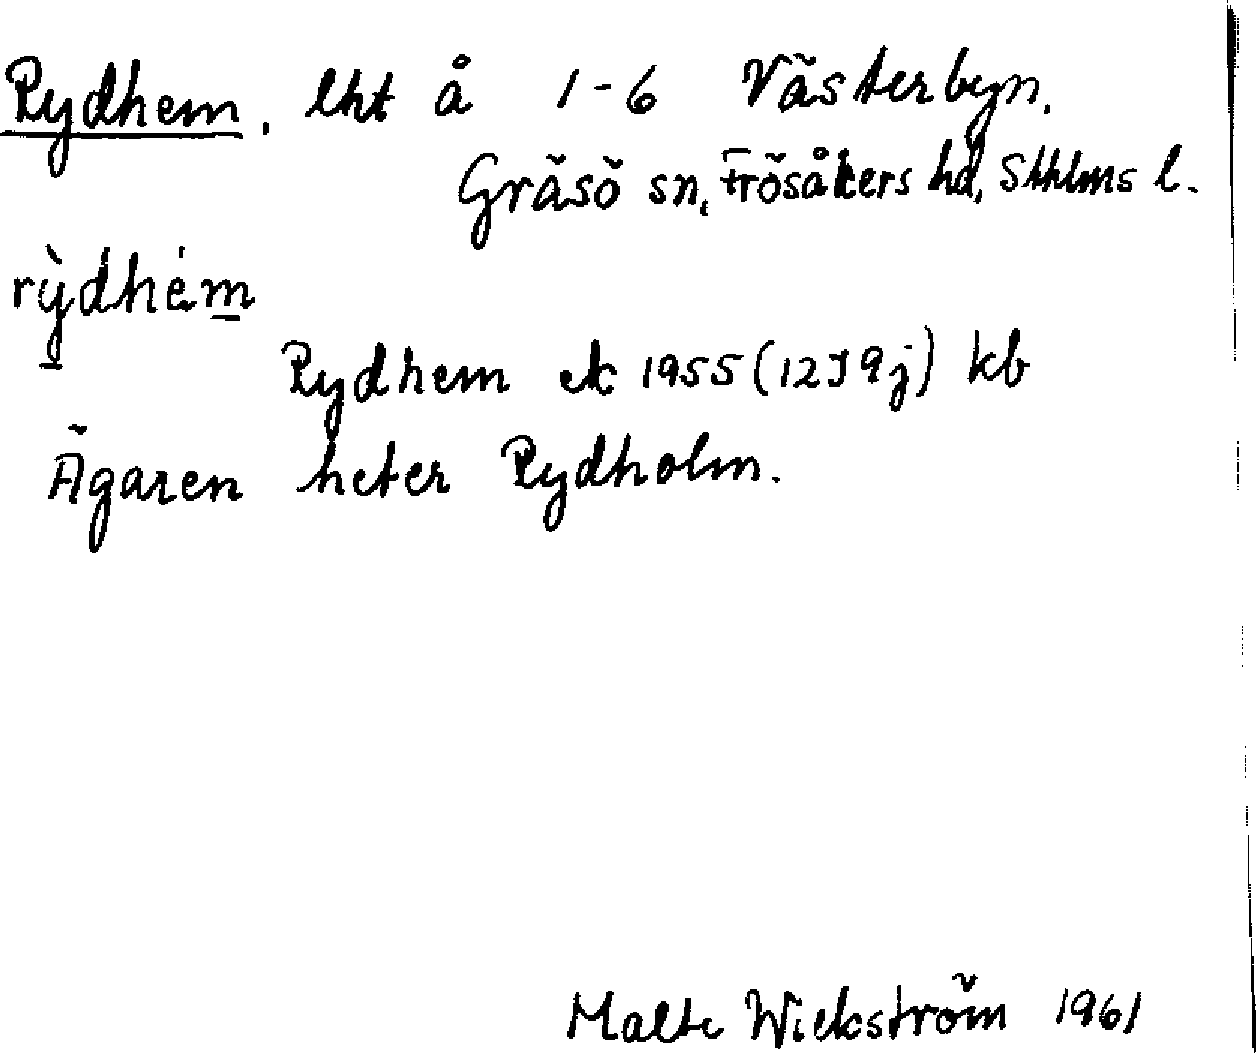 Rydhem. lht å 1-6 Västerbyn.
Gräsö sn, Frösåkers hd, Sthlms l.
rỳdhém
Rydhem ek 1955 (12I9j) kb
Ägaren heter Rydholm.
Malte Wickström 1961